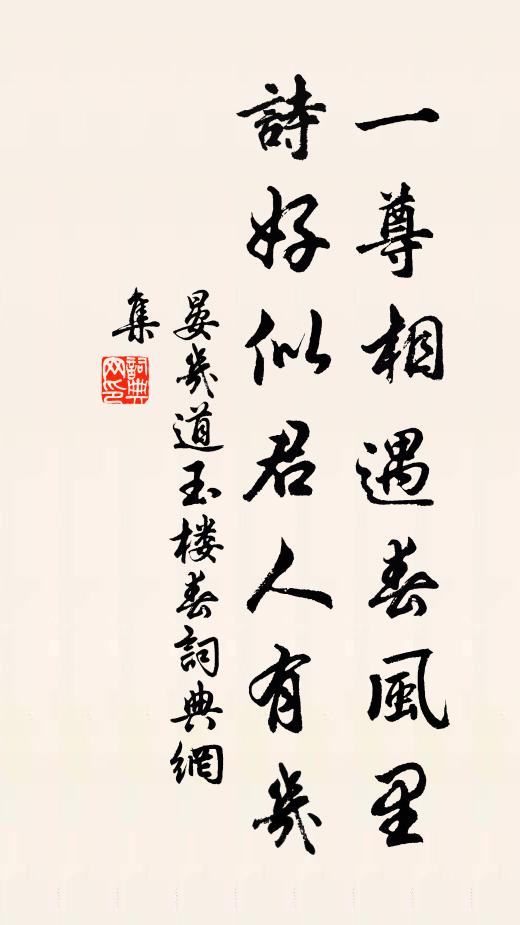 一尊相遇春風里
詩好似君人有幾
晏幾道玉楼春詞典網
集
詞典網印